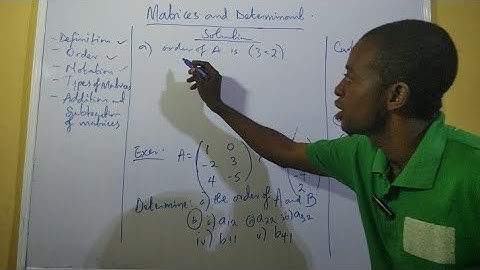 Matrices and Determinant.
- Definition ✓
- Order ✓
- Notation ✓
- Types of Matrices
- Addition and
Subtraction
of matrices
Solution
a) order of A is (3×2)
Exer: A = ( 1 0
-2 3
4 -5 )
2
Determine: a) the order of A and B
(b) i) a12 ii) a22 iii) a32
iv) b11 v) b41